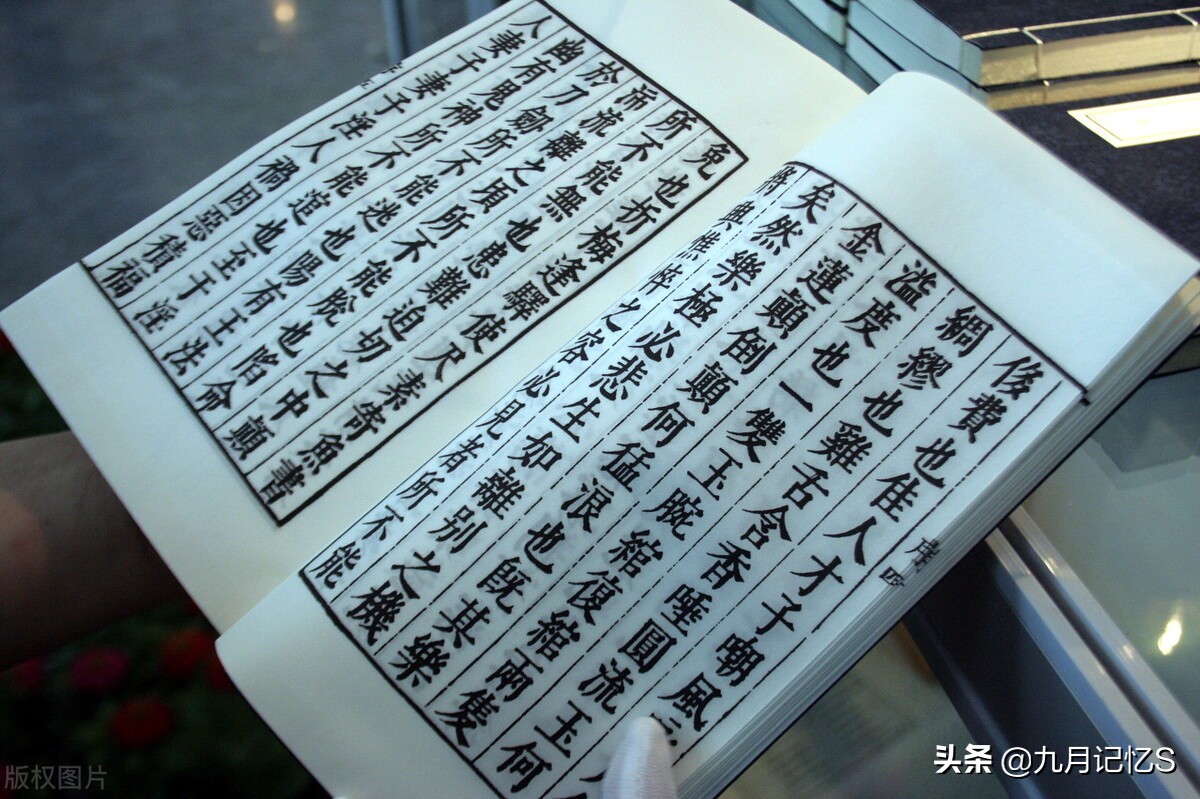 侈費也佳人才子嘲風
綢繆也雞舌含香唾圓流玉何
溢度也一雙玉腕綰復綰兩隻
金蓮顛倒顛何猛浪也既其樂
矣然樂極必悲生如離別之機
將興憔悴之容必見者所不能
免也折梅逢驛使尺素寄魚書
所不能無也患難迫切之中顛
沛流離之頃所不能脫也陷命
於刀劍所不能逃也陽有王法
幽有鬼神所不能逭也至于淫
人妻子妻子淫人禍因惡積福
序 四
版权图片
头条 @九月记忆S